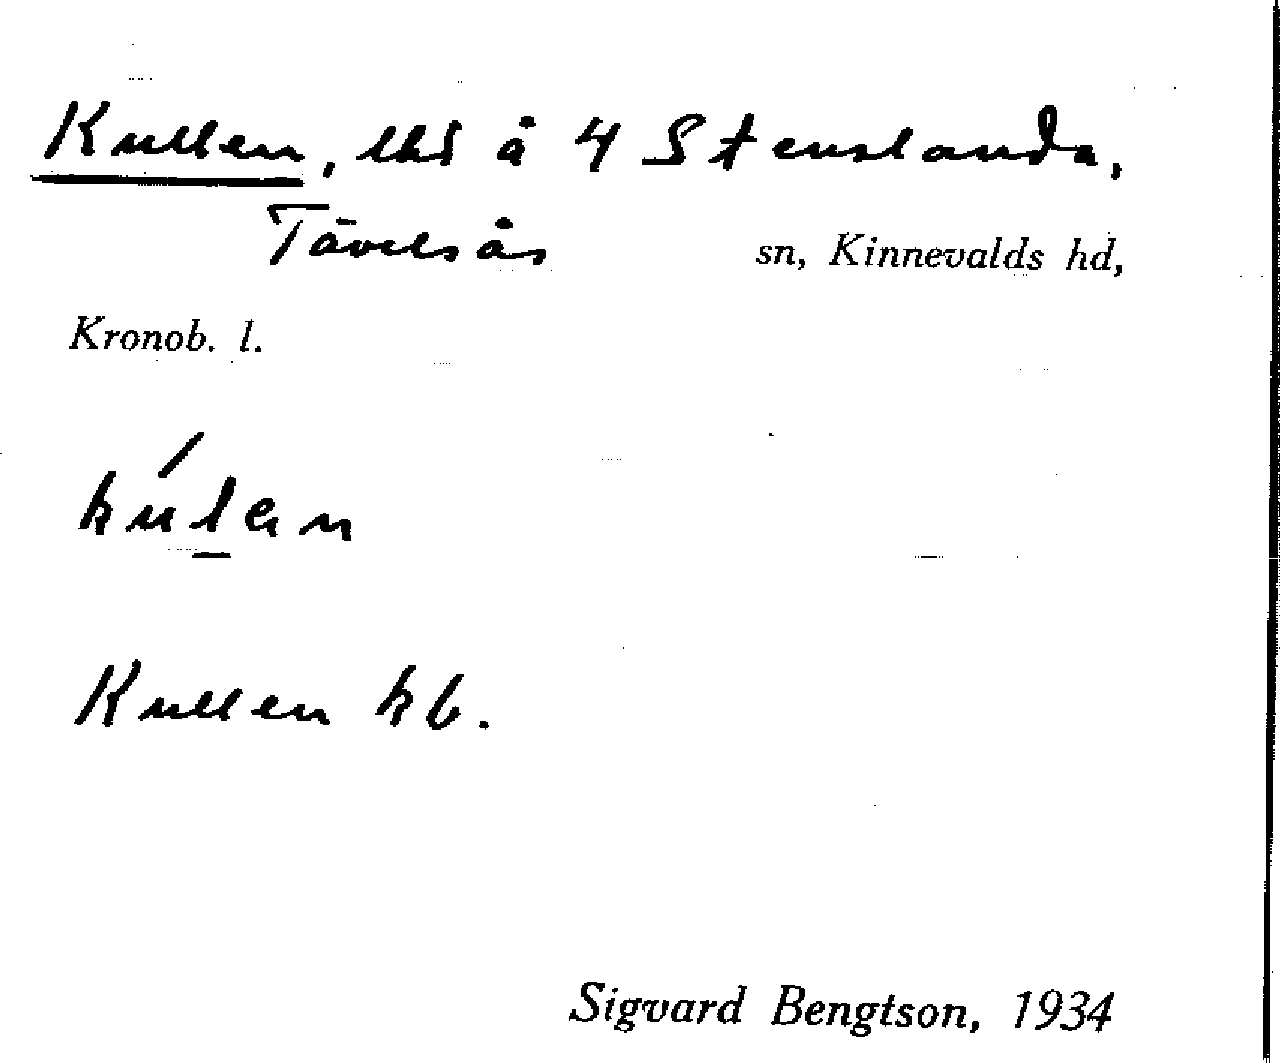 Kullen, lhs å 4 Stenslanda,
Tävelsås sn, Kinnevalds hd,
Kronob. l.
Kullen kb.
Sigvard Bengtson, 1934